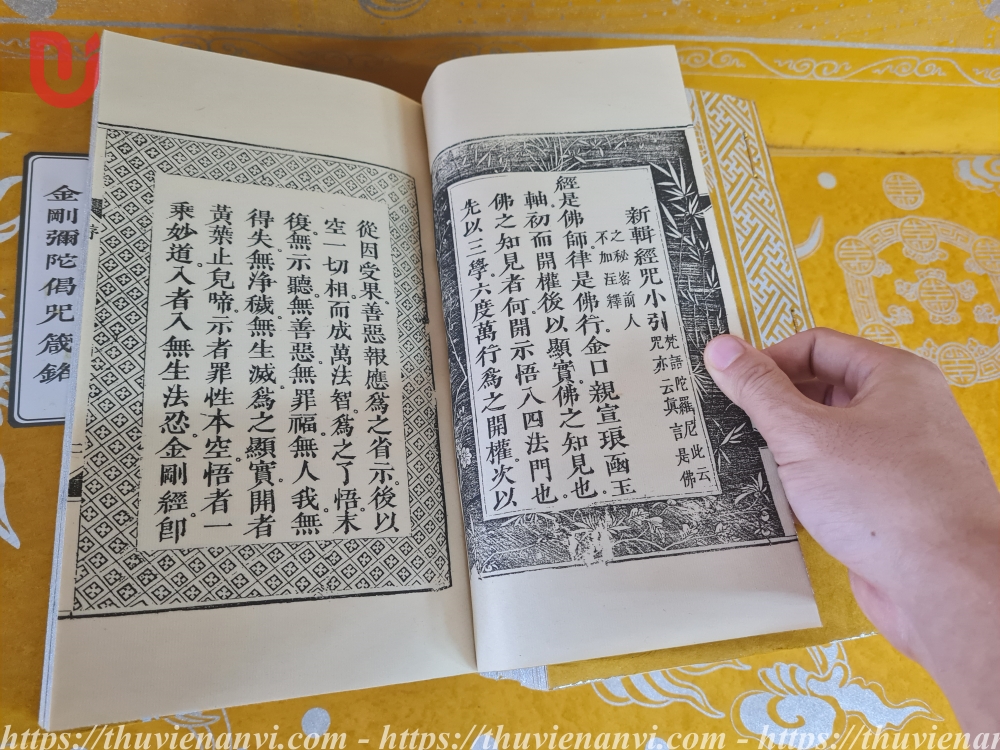 新輯經咒小引
梵語陀羅尼此云
咒亦云眞言是佛
之秘密前人
不加注釋
經是佛師。律是佛行。金口親宣琅函玉
軸。初而開權後以顯實。佛之知見也。
佛之知見者何。開示悟入四法門也。
先以三學六度萬行爲之開權。次以
從因受果。善惡報應。爲之省示。後以
空一切相。而成萬法智。爲之了悟。末
復無示聽。無善惡。無罪福。無人我。無
得失。無淨穢。無生滅。爲之顯實。開者
黃葉止兒啼。示者罪性本空。悟者一
乘妙道。入者入無生法忍。金剛經卽
序
金剛彌陀偈咒箴銘
https://thuvienanvi.com - https://thuvienanvi.com - https://thuvienanvi.com